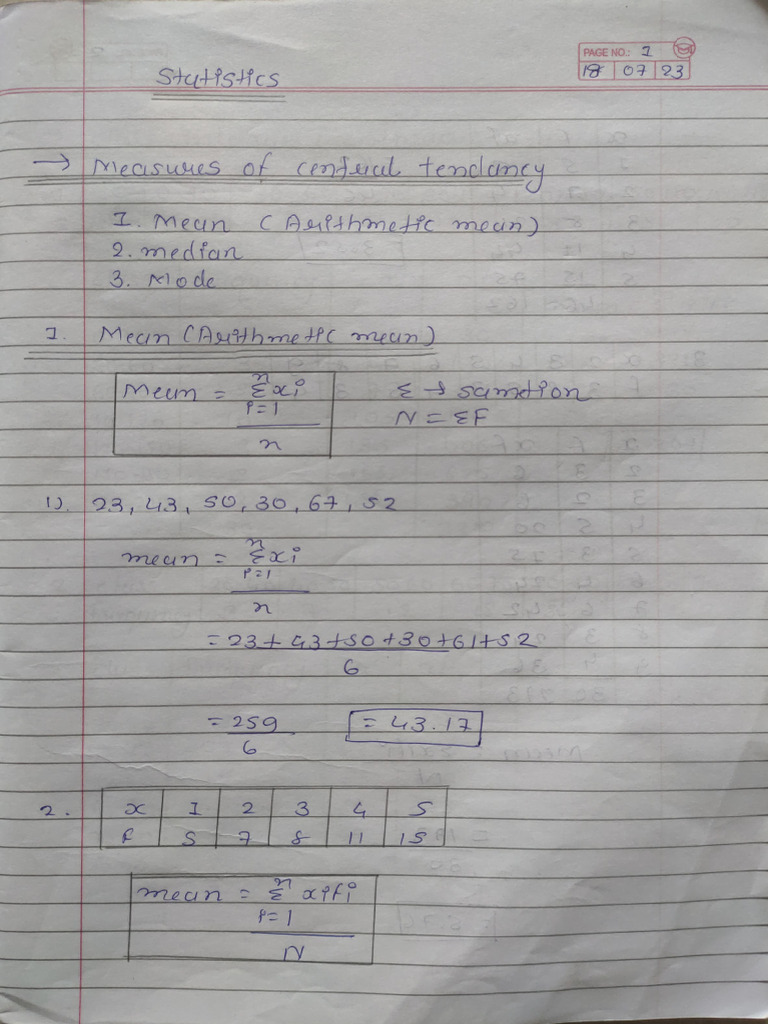 PAGE NO.: 1
18 07 23
Statistics
→ Measures of central tendancy
1. Mean (Arithmetic mean)
2. median
3. Mode
1. Mean (Arithmetic mean)
Mean = n Σ xi i=1 / n
Σ → samtion
N = ΣF
1). 23, 43, 50, 30, 67, 52
mean = n Σ xi i=1 / n
= 23 + 43 + 50 + 30 + 61 + 52 / 6
= 259 / 6 = 43.17
2. x 1 2 3 4 5
f 5 7 8 11 15
mean = n Σ xifi i=1 / N